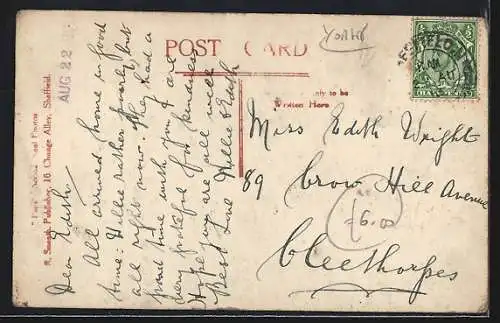 YORKS
POST CARD
AUG 22
R. Sneath, Publisher, 16 Change Alley, Sheffield.
only to be
Written Here
Dear Edith.
All arrived home in good
time. Nellie rather poorly but
all right now. They had a
good time with you & are
very grateful for kindness
Hope you are all well
Best Love Nellie &
Miss Edith Wright
89 Crow Hill Avenue
Cleethorpes
£6.00
HALFPENNY